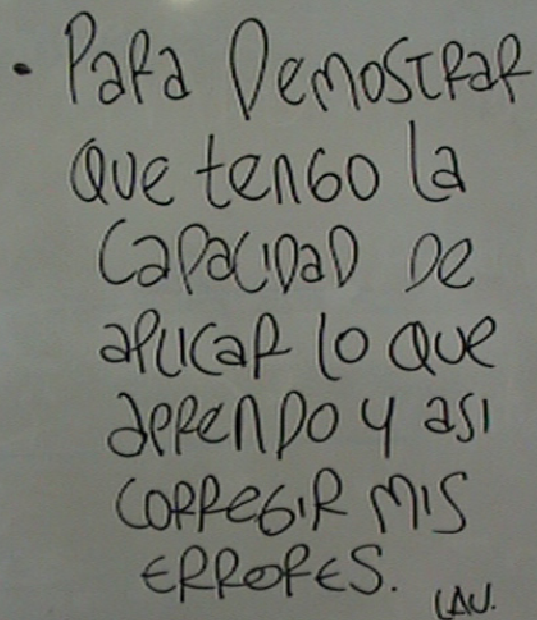 • Para Demostrar
que tengo la
capacidad de
aplicar lo que
aprendo y asi
corregir mis
errores.
LAU.